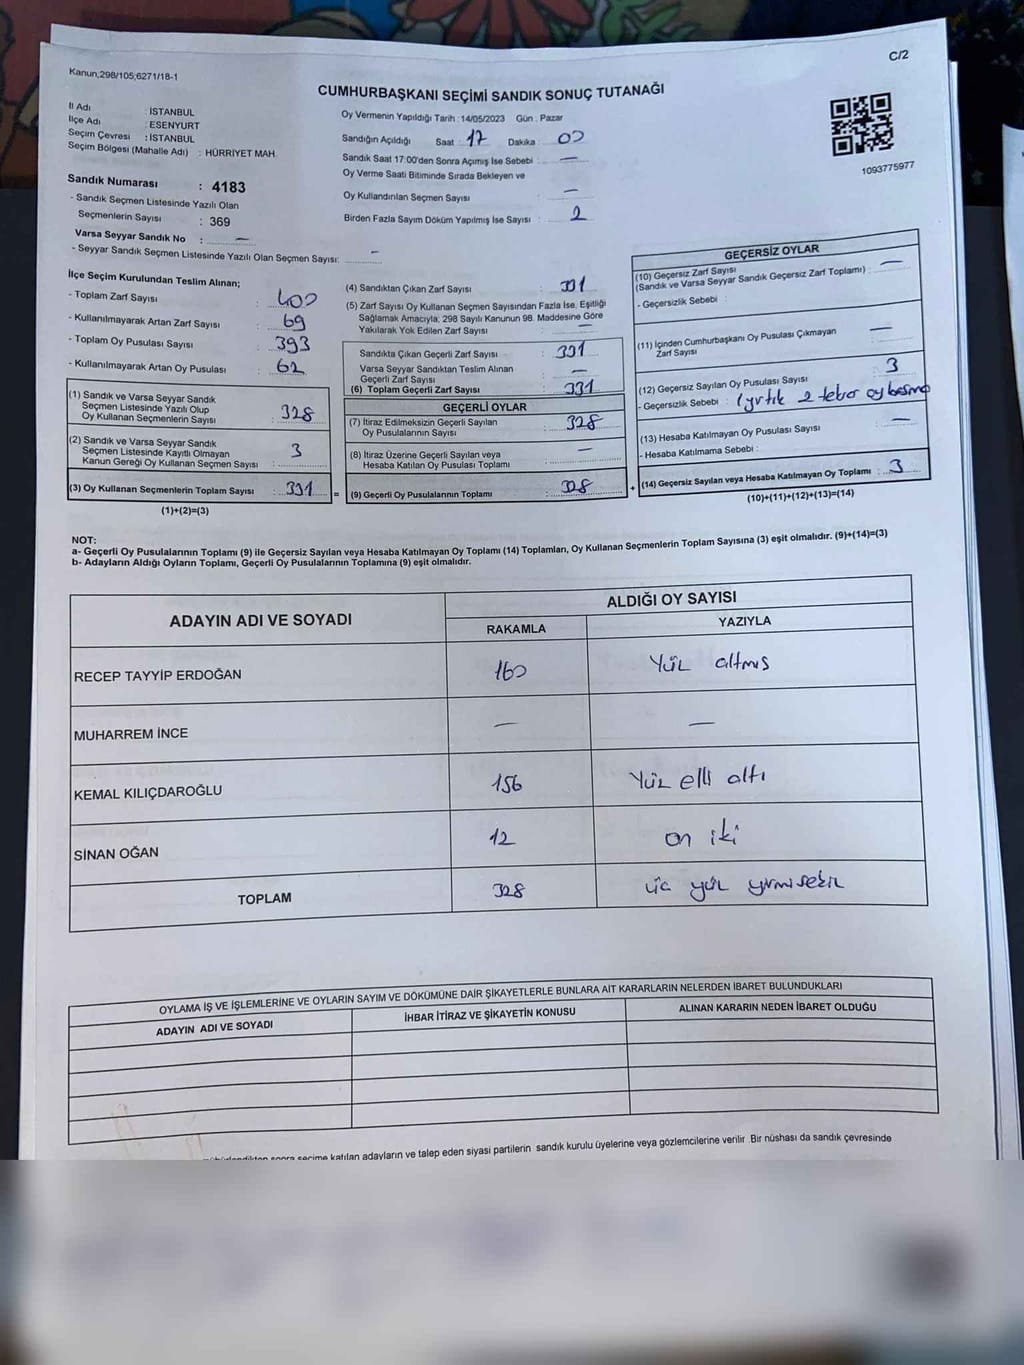 C/2
Kanun,298/105,6271/18-1
CUMHURBAŞKANI SEÇİMİ SANDIK SONUÇ TUTANAĞI
İl Adı : İSTANBUL
İlçe Adı : ESENYURT
Seçim Çevresi : İSTANBUL
Seçim Bölgesi (Mahalle Adı) : HÜRRİYET MAH.
Sandık Numarası : 4183
- Sandık Seçmen Listesinde Yazılı Olan
Seçmenlerin Sayısı : 369
Varsa Seyyar Sandık No : —
- Seyyar Sandık Seçmen Listesinde Yazılı Olan Seçmen Sayısı: —
Oy Vermenin Yapıldığı Tarih : 14/05/2023 Gün : Pazar
Sandığın Açıldığı Saat : 17 Dakika : 00
Sandık Saat 17:00'den Sonra Açımış İse Sebebi : —
Oy Verme Saati Bitiminde Sırada Bekleyen ve
Oy Kullandırılan Seçmen Sayısı : —
Birden Fazla Sayım Döküm Yapılmış İse Sayısı : 2
1093775977
İlçe Seçim Kurulundan Teslim Alınan;
- Toplam Zarf Sayısı : 400
- Kullanılmayarak Artan Zarf Sayısı : 69
- Toplam Oy Pusulası Sayısı : 393
- Kullanılmayarak Artan Oy Pusulası : 62
(1) Sandık ve Varsa Seyyar Sandık
Seçmen Listesinde Yazılı Olup
Oy Kullanan Seçmenlerin Sayısı : 328
(2) Sandık ve Varsa Seyyar Sandık
Seçmen Listesinde Kayıtlı Olmayan
Kanun Gereği Oy Kullanan Seçmen Sayısı : 3
(3) Oy Kullanan Seçmenlerin Toplam Sayısı : 331 =
(1)+(2)=(3)
(4) Sandıktan Çıkan Zarf Sayısı : 331
(5) Zarf Sayısı Oy Kullanan Seçmen Sayısından Fazla İse, Eşitliği
Sağlamak Amacıyla, 298 Sayılı Kanunun 98. Maddesine Göre
Yakılarak Yok Edilen Zarf Sayısı : —
Sandıkta Çıkan Geçerli Zarf Sayısı : 331
Varsa Seyyar Sandıktan Teslim Alınan
Geçerli Zarf Sayısı : —
(6) Toplam Geçerli Zarf Sayısı : 331
GEÇERLİ OYLAR
(7) İtiraz Edilmeksizin Geçerli Sayılan
Oy Pusulalarının Sayısı : 328
(8) İtiraz Üzerine Geçerli Sayılan veya
Hesaba Katılan Oy Pusulası Toplamı : —
(9) Geçerli Oy Pusulalarının Toplamı : 328 +
GEÇERSİZ OYLAR
(10) Geçersiz Zarf Sayısı
(Sandık ve Varsa Seyyar Sandık Geçersiz Zarf Toplamı) : —
- Geçersizlik Sebebi :
(11) İçinden Cumhurbaşkanı Oy Pusulası Çıkmayan
Zarf Sayısı : —
(12) Geçersiz Sayılan Oy Pusulası Sayısı : 3
- Geçersizlik Sebebi : 1 yırtık 2 tekrar oy basımı
(13) Hesaba Katılmayan Oy Pusulası Sayısı : —
- Hesaba Katılmama Sebebi :
(14) Geçersiz Sayılan veya Hesaba Katılmayan Oy Toplamı : 3
(10)+(11)+(12)+(13)=(14)
NOT:
a- Geçerli Oy Pusulalarının Toplamı (9) ile Geçersiz Sayılan veya Hesaba Katılmayan Oy Toplamı (14) Toplamları, Oy Kullanan Seçmenlerin Toplam Sayısına (3) eşit olmalıdır. (9)+(14)=(3)
b- Adayların Aldığı Oyların Toplamı, Geçerli Oy Pusulalarının Toplamına (9) eşit olmalıdır.
ADAYIN ADI VE SOYADI ALDIĞI OY SAYISI
RAKAMLA YAZIYLA
RECEP TAYYİP ERDOĞAN 160 Yüz altmış
MUHARREM İNCE — —
KEMAL KILIÇDAROĞLU 156 Yüz elli altı
SİNAN OĞAN 12 on iki
TOPLAM 328 üç yüz yirmi sekiz
OYLAMA İŞ VE İŞLEMLERİNE VE OYLARIN SAYIM VE DÖKÜMÜNE DAİR ŞİKAYETLERLE BUNLARA AİT KARARLARIN NELERDEN İBARET BULUNDUKLARI
ADAYIN ADI VE SOYADI İHBAR İTİRAZ VE ŞİKAYETİN KONUSU ALINAN KARARIN NEDEN İBARET OLDUĞU
sonra seçime katılan adayların ve talep eden siyasi partilerin sandık kurulu üyelerine veya gözlemcilerine verilir. Bir nüshası da sandık çevresinde